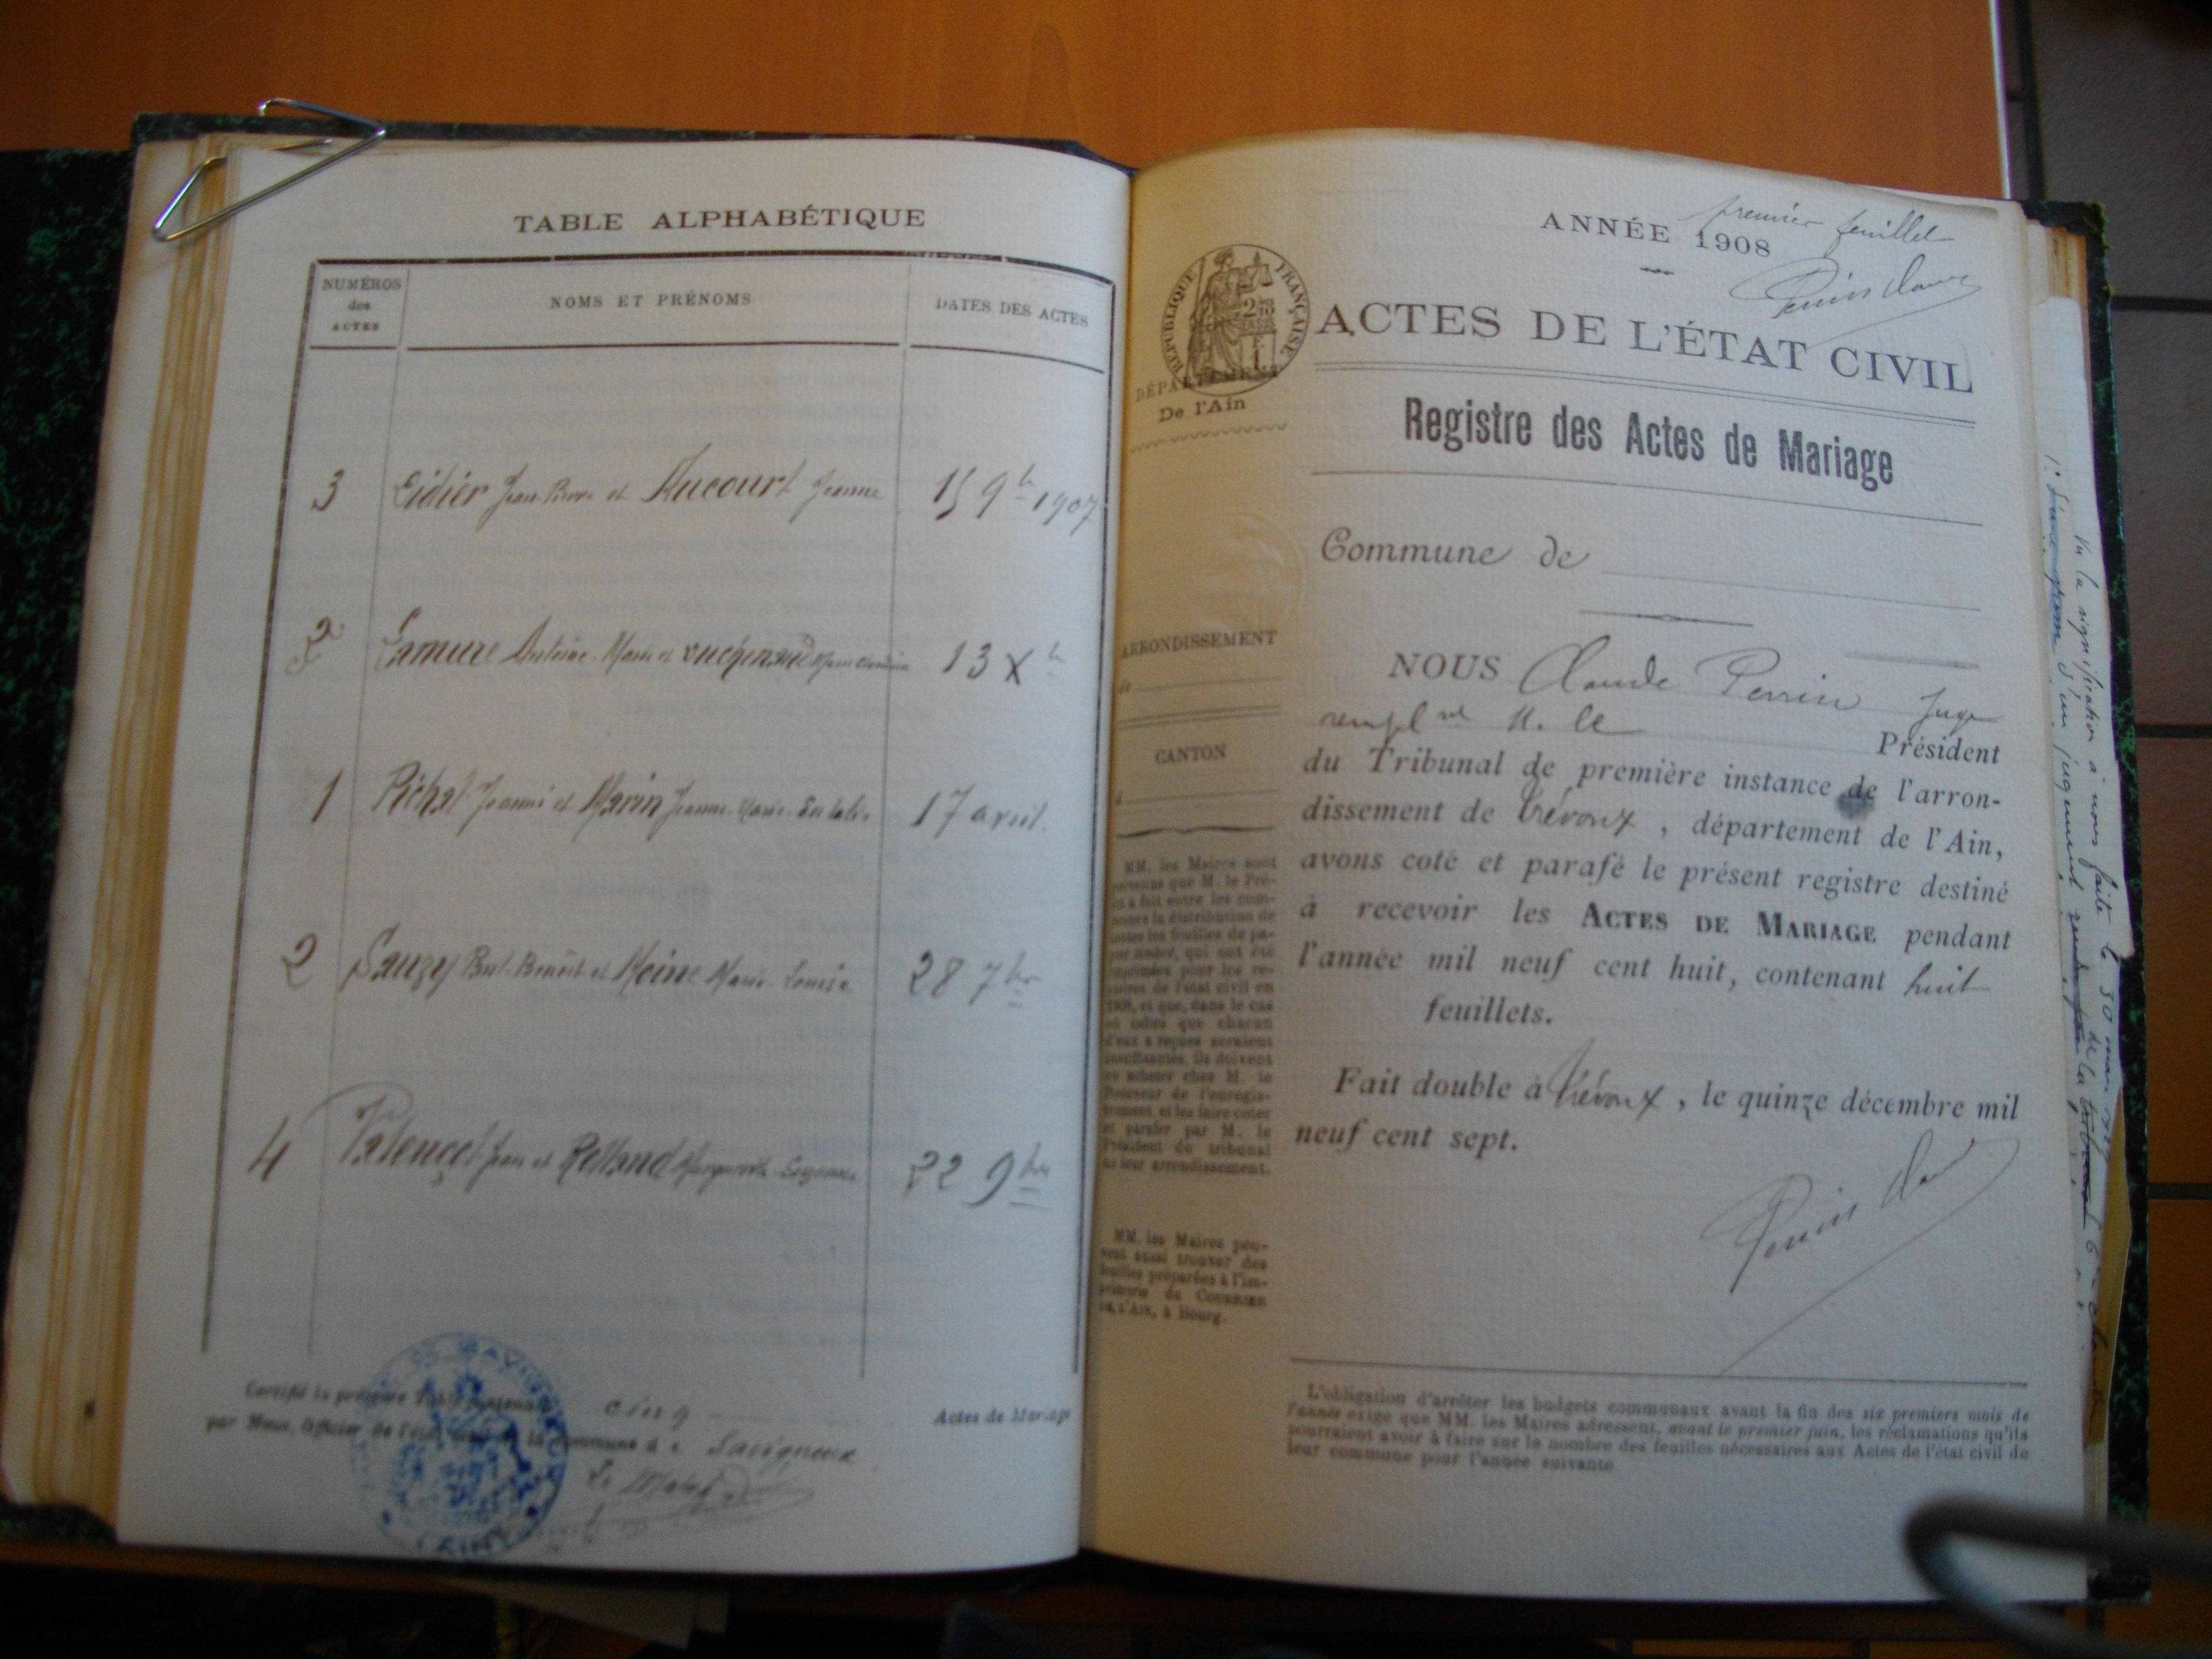 TABLE ALPHABÉTIQUE
NUMÉROS
des
ACTES
NOMS ET PRÉNOMS
DATES DES ACTES
3 Didier Jean-Pierre et Aucourt Jeanne 15 9bre 1907
Lamure Antoine-Marie et 13 Xbre
1 Pichat Joanni et Marin Jeanne-Marie- 17 avril.
2 Sauzey Benoit et Moine Marie-Louise 28 7bre
4 Valençot Jean et Rolland Marguerite- 22 9bre
Certifié la présente Table contenant cinq Actes de Mariage
par Nous, Officier de l'état civil de la commune de Savigneux
Le Maire
AIN
premier feuillet
ANNÉE 1908
Perrin Claude
RÉPUBLIQUE FRANÇAISE
ACTES DE L'ÉTAT CIVIL
DÉPARTEMENT
De l'Ain
Registre des Actes de Mariage
Commune de
ARRONDISSEMENT
de
NOUS Claude Perrin Juge
rempl nt M. le
Président
CANTON
du Tribunal de première instance de l'arron-
dissement de Trévoux, département de l'Ain,
avons coté et parafé le présent registre destiné
à recevoir les ACTES DE MARIAGE pendant
l'année mil neuf cent huit, contenant huit
feuillets.
Fait double à Trévoux, le quinze décembre mil
neuf cent sept.
Perrin Claude
MM. les Maires sont
prévenus que M. le Pré-
fet a fait entre les com-
munes la distribution de
toutes les feuilles de pa-
pier timbré, qui ont été
imprimées pour les re-
gistres de l'état civil en
1908, et que, dans le cas
où celles que chacun
d'eux a reçues seraient
insuffisantes, ils doivent
en acheter chez M. le
Receveur de l'enregis-
trement et les faire coter
et parafer par M. le
Président du tribunal
de leur arrondissement.
MM. les Maires peu-
vent aussi trouver des
feuilles préparées à l'im-
primerie du COURRIER
DE L'AIN, à Bourg.
L'obligation d'arrêter les budgets communaux avant la fin des six premiers mois de
l'année exige que MM. les Maires adressent, avant le premier juin, les réclamations qu'ils
pourraient avoir à faire sur le nombre des feuilles nécessaires aux Actes de l'état civil de
leur commune pour l'année suivante.
Vu la signification à nous faite le 30 mai
d'un jugement de la